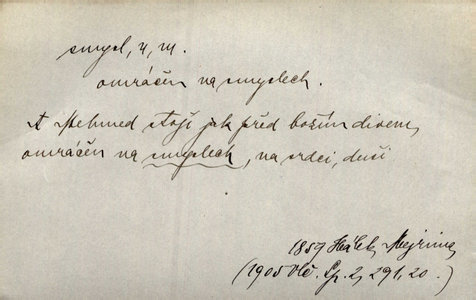 smysl, u, m.
omráčen na smyslech.
A Mehmed stojí jak před božím divem,
omráčen na smyslech, na srdci, duši
1859 Hálek, Mejrima
(1905 Vlč. Sp. 2, 291, 20.)